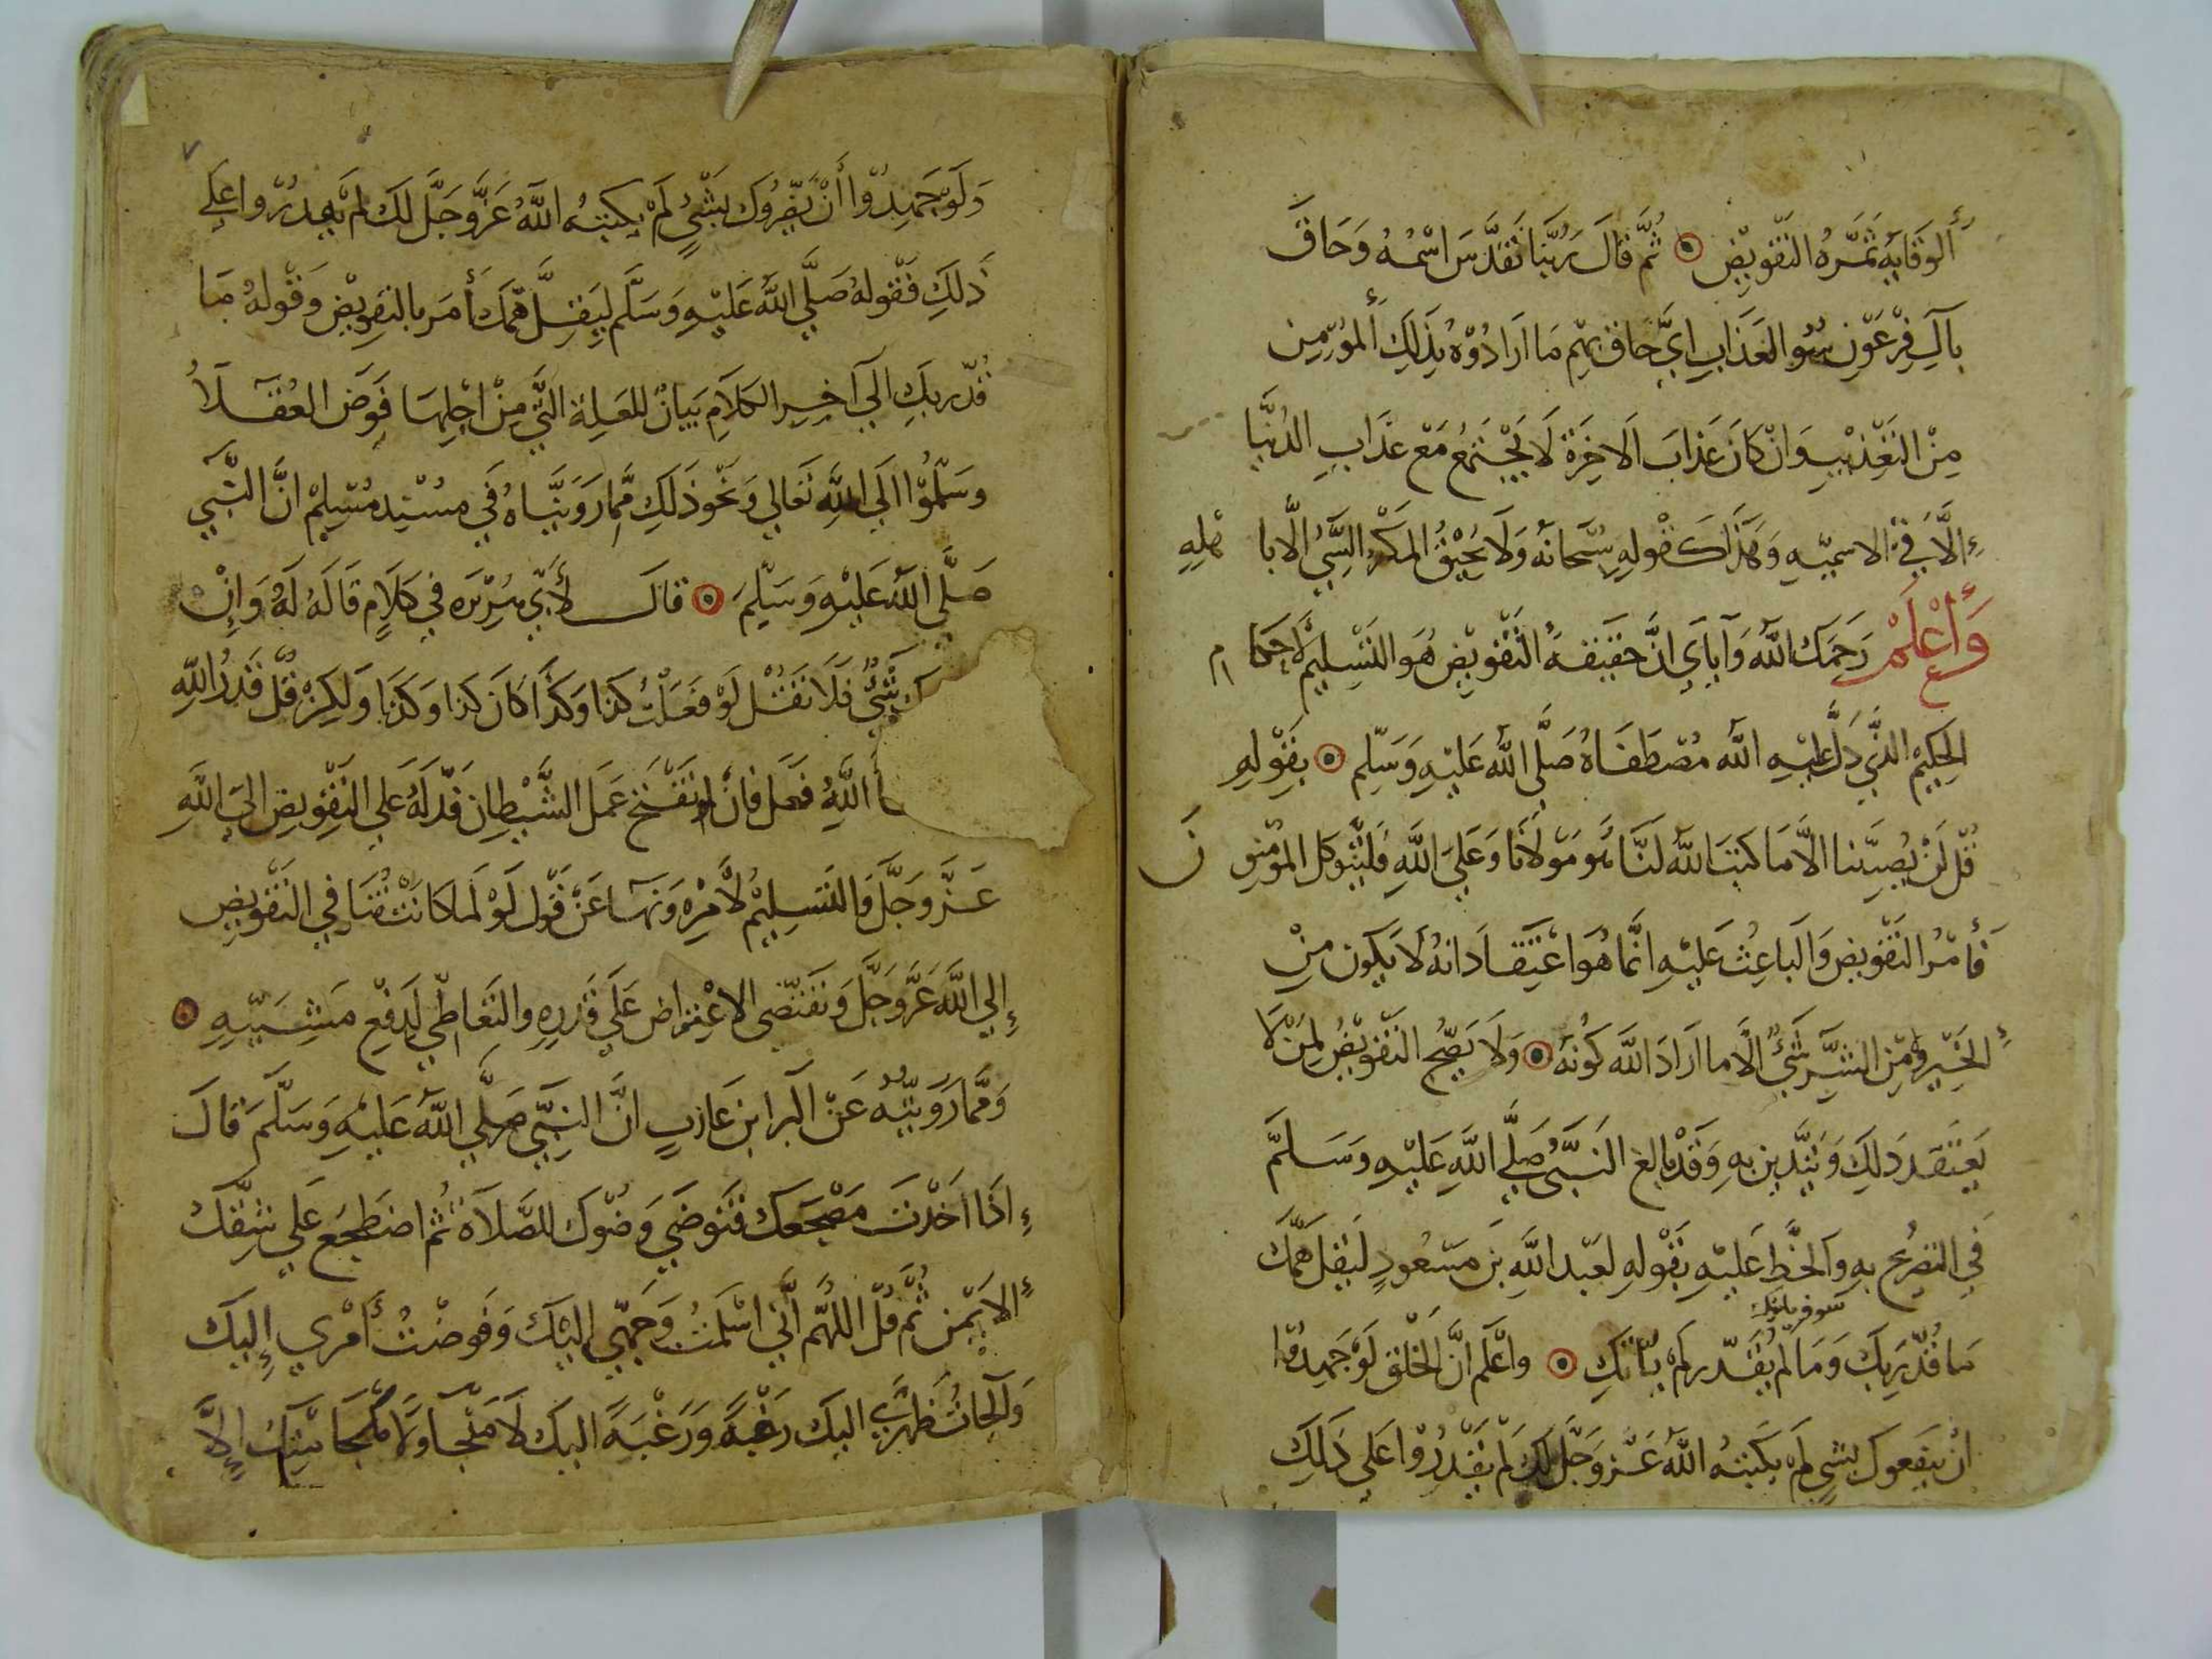 ألوقايه ثمره التفويض ثم قال ربنا تقدس اسمه وحاق
بآل فرعون سو العذاب اي حاق بهم ما ارادوه بذلك ألمؤمن
من التعذيب وان كان عذاب الاخرة لا يجتمع مع عذاب الدنيا
الا في الاسميه وهذا كقوله سبحانه ولا يحيق المكر السيئ الا با هله
وأعلم رحمك الله وآياي ان حقيقة التفويض هو التسليم لاحكا م
الحكيم الذي دل عليه الله مصطفاه صلى الله عليه وسلم بقوله
قل لن يصيبنا الا ما كتب الله لنا هو مولانا وعلى الله فليتوكل المومنو ن
فأمر التفويض والباعث عليه انما هو اعتقاد انه لا يكون من
الخير ومن الشر شئ الا ما اراد الله كونه ولا يصح التفويض لمن لا
يعتقد ذلك ويتدين به وقد بالغ النبي صلى الله عليه وسلم
في التصريح به والحظ عليه بقوله لعبد الله بن مسعود ليقل همك
سوف يأتيك
ما قدر يك وما لم يقدر لم يأتك واعلم ان الخلق لو جهدوا
ان ينفعوك بشي لم يكتبه الله عز وجل لك لم يقدروا على ذلك
٧
ولو جهدوا أن يضروك بشئ لم يكتبه الله عز وجل لك لم يقدروا على
ذلك فقوله صلى الله عليه وسلم ليقل همك أمر بالتفويض وقوله ما
قدر يك الى آخر الكلام بيان للعلة التي من اجلها فوض العقلا
وسلموا الى الله تعالى ونحو ذلك مما رويناه في مسند مسلم ان النبي
صلى الله عليه وسلم قال لأبي هريره في كلام قاله له وان
ك شئ فلا تقل لو فعلت كذا وكذا كان كذا وكذا ولكن قل قدر الله
أ الله فعل فان لو تفتح عمل الشيطان فدله على التفويض الى الله
عز وجل والتسليم لأمره ونهاه عن قول لو لما كانت في التفويض
إلى الله عز وجل وتقتضى الاعتراض على قدره والتعاطي لدفع مشيته
ومما رويته عن البرا بن عازب ان النبي صلى الله عليه وسلم قال
اذا اخذت مضجعك فتوضي وضوك للصلاة ثم اضطجع على شقك
الايمن ثم قل اللهم اني اسلمت وجهي اليك وفوضت أمري إليك
وألجات ظهري اليك رغبة ورغبة اليك لا منجا ولا ملجا منك إلا